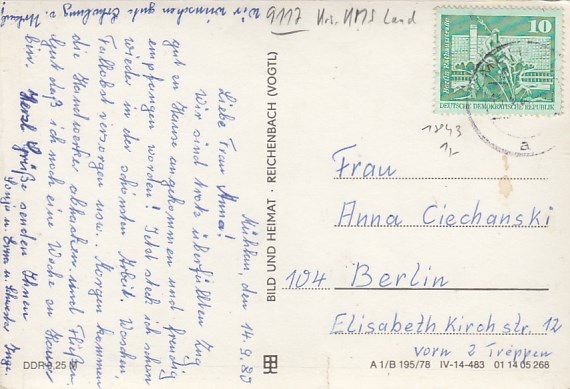 Wir wünschen gute Erholung u. Urlaub!
9117
Krs. NMS Land
Mühlen, den 14.9.80
Liebe Frau Anna!
Wir sind trotz überfüllten Zug
gut zu Hause angekommen und freudig
empfangen worden! Jetzt steck ich schon
wieder in der schönsten Arbeit. Waschen,
Fallobst versorgen usw. Morgen kommen
die Handwerker abhacken und Fließen.
Gut daß ich noch eine Woche zu Hause
bin. Herzl. Grüße senden Ihnen
Sonja u. Oma u. Schwester Inge.
BILD UND HEIMAT · REICHENBACH (VOGTL)
10
DEUTSCHE DEMOKRATISCHE REPUBLIK
a
1843
Frau
Anna Ciechanski
104 Berlin
Elisabeth Kirch str. 12
vorn 2 Treppen
DDR 0,25 M
A 1/B 195/78 IV-14-483 01 14 05 268